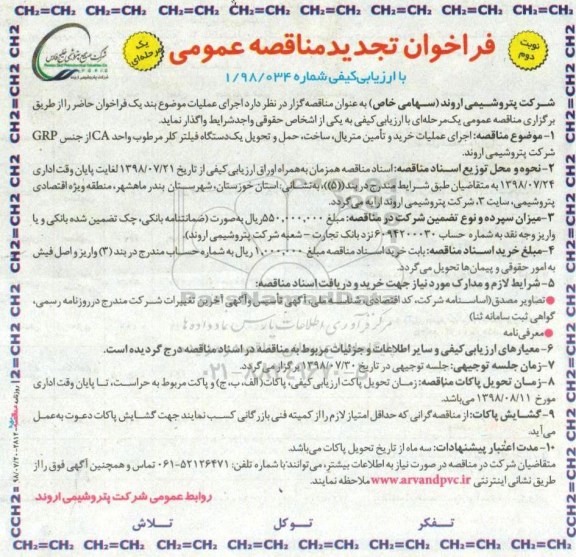 CH₂=CH₂ CH₂=CH₂ CH₂=CH₂ CH₂=CH₂ CH₂=CH₂ CH₂=CH₂ CH₂=CH₂ CH₂=CH₂ CH₂=CH₂
نوبت دوم
فراخوان تجدید مناقصه عمومی
یک مرحله‌ای
با ارزیابی کیفی شماره ۱/۹۸/۰۳۴
شرکت پتروشیمی اروند (سهامی خاص) به عنوان مناقصه گزار در نظر دارد اجرای عملیات موضوع بند یک فراخوان حاضر را از طریق
برگزاری مناقصه عمومی یک مرحله‌ای با ارزیابی کیفی به یکی از اشخاص حقوقی واجد شرایط واگذار نماید.
۱- موضوع مناقصه: اجرای عملیات خرید و تأمین متریال، ساخت، حمل و تحویل یک دستگاه فیلتر کلر مرطوب واحد CA از جنس GRP
شرکت پتروشیمی اروند.
۲- نحوه و محل توزیع اسناد مناقصه: اسناد مناقصه همزمان به همراه اوراق ارزیابی کیفی از تاریخ ۱۳۹۸/۰۷/۲۱ لغایت پایان وقت اداری
۱۳۹۸/۰۷/۲۴ به متقاضیان طبق شرایط مندرج در بند ((۵))، به نشانی: استان خوزستان، شهرستان بندر ماهشهر، منطقه ویژه اقتصادی
پتروشیمی، سایت ۳، شرکت پتروشیمی اروند ارایه می‌گردد.
۳- میزان سپرده و نوع تضمین شرکت در مناقصه: مبلغ ۵۵۰,۰۰۰,۰۰۰ ریال به صورت (ضمانتنامه بانکی، چک تضمین شده بانکی و یا
واریز وجه نقد به شماره حساب ۶۰۹۴۲۰۰۰۳۰ نزد بانک تجارت - شعبه شرکت پتروشیمی اروند).
۴- مبلغ خرید اسناد مناقصه: بابت خرید اسناد مناقصه مبلغ ۱,۰۰۰,۰۰۰ ریال به شماره حساب مندرج در بند (۳) واریز و اصل فیش
به امور حقوقی و پیمان‌ها تحویل می‌گردد.
۵- شرایط لازم و مدارک مورد نیاز جهت خرید و دریافت اسناد مناقصه:
تصاویر مصدق (اساسنامه شرکت، کد اقتصادی، شناسه ملی، آگهی تاسیس و آگهی آخرین تغییرات شرکت مندرج در روزنامه رسمی،
گواهی ثبت سامانه ثنا)
معرفی‌نامه
۶- معیارهای ارزیابی کیفی و سایر اطلاعات و جزئیات مربوط به مناقصه در اسناد مناقصه درج گردیده است.
۷- زمان جلسه توجیهی: جلسه توجیهی در تاریخ ۱۳۹۸/۰۷/۳۰ برگزار می‌گردد.
۸- زمان تحویل پاکات مناقصه: زمان تحویل پاکت ارزیابی کیفی، پاکات (الف، ب، ج) و پاکت مربوط به حراست، تا پایان وقت اداری
مورخ ۱۳۹۸/۰۸/۱۱ می‌باشد.
۹- گشایش پاکات: از مناقصه گرانی که حداقل امتیاز لازم را از کمیته فنی بازرگانی کسب نمایند جهت گشایش پاکات دعوت به عمل
می‌آید.
۱۰- مدت اعتبار پیشنهادات: سه ماه از تاریخ تحویل پاکات می‌باشد.
متقاضیان شرکت در مناقصه در صورت نیاز به اطلاعات بیشتر، می‌توانند: با شماره تلفن: ۵۲۱۲۶۴۷۱-۰۶۱ تماس و همچنین آگهی فوق را از
طریق نشانی اینترنتی www.arvandpvc.ir ملاحظه نمایند.
روابط عمومی شرکت پتروشیمی اروند
تفکر توکل تلاش
CH₂=CH₂ CH₂=CH₂ CH₂=CH₂ CH₂=CH₂ CH₂=CH₂ CH₂=CH₂ CH₂=CH₂ CH₂=CH₂